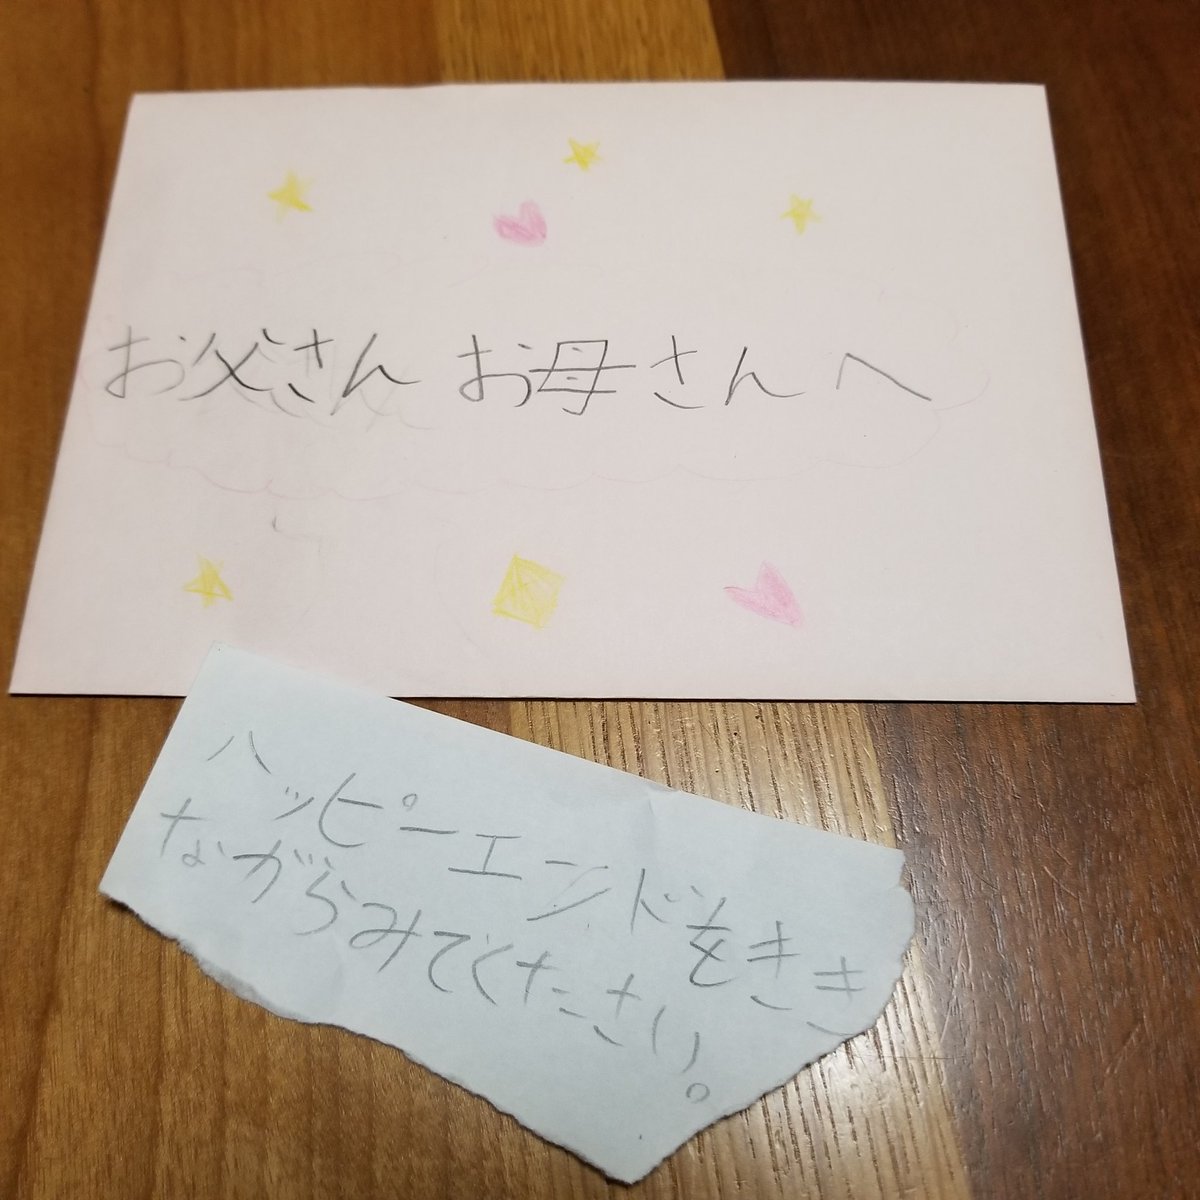 お父さん お母さんへ
ハッピーエンドをきき
ながらみてくたさい。